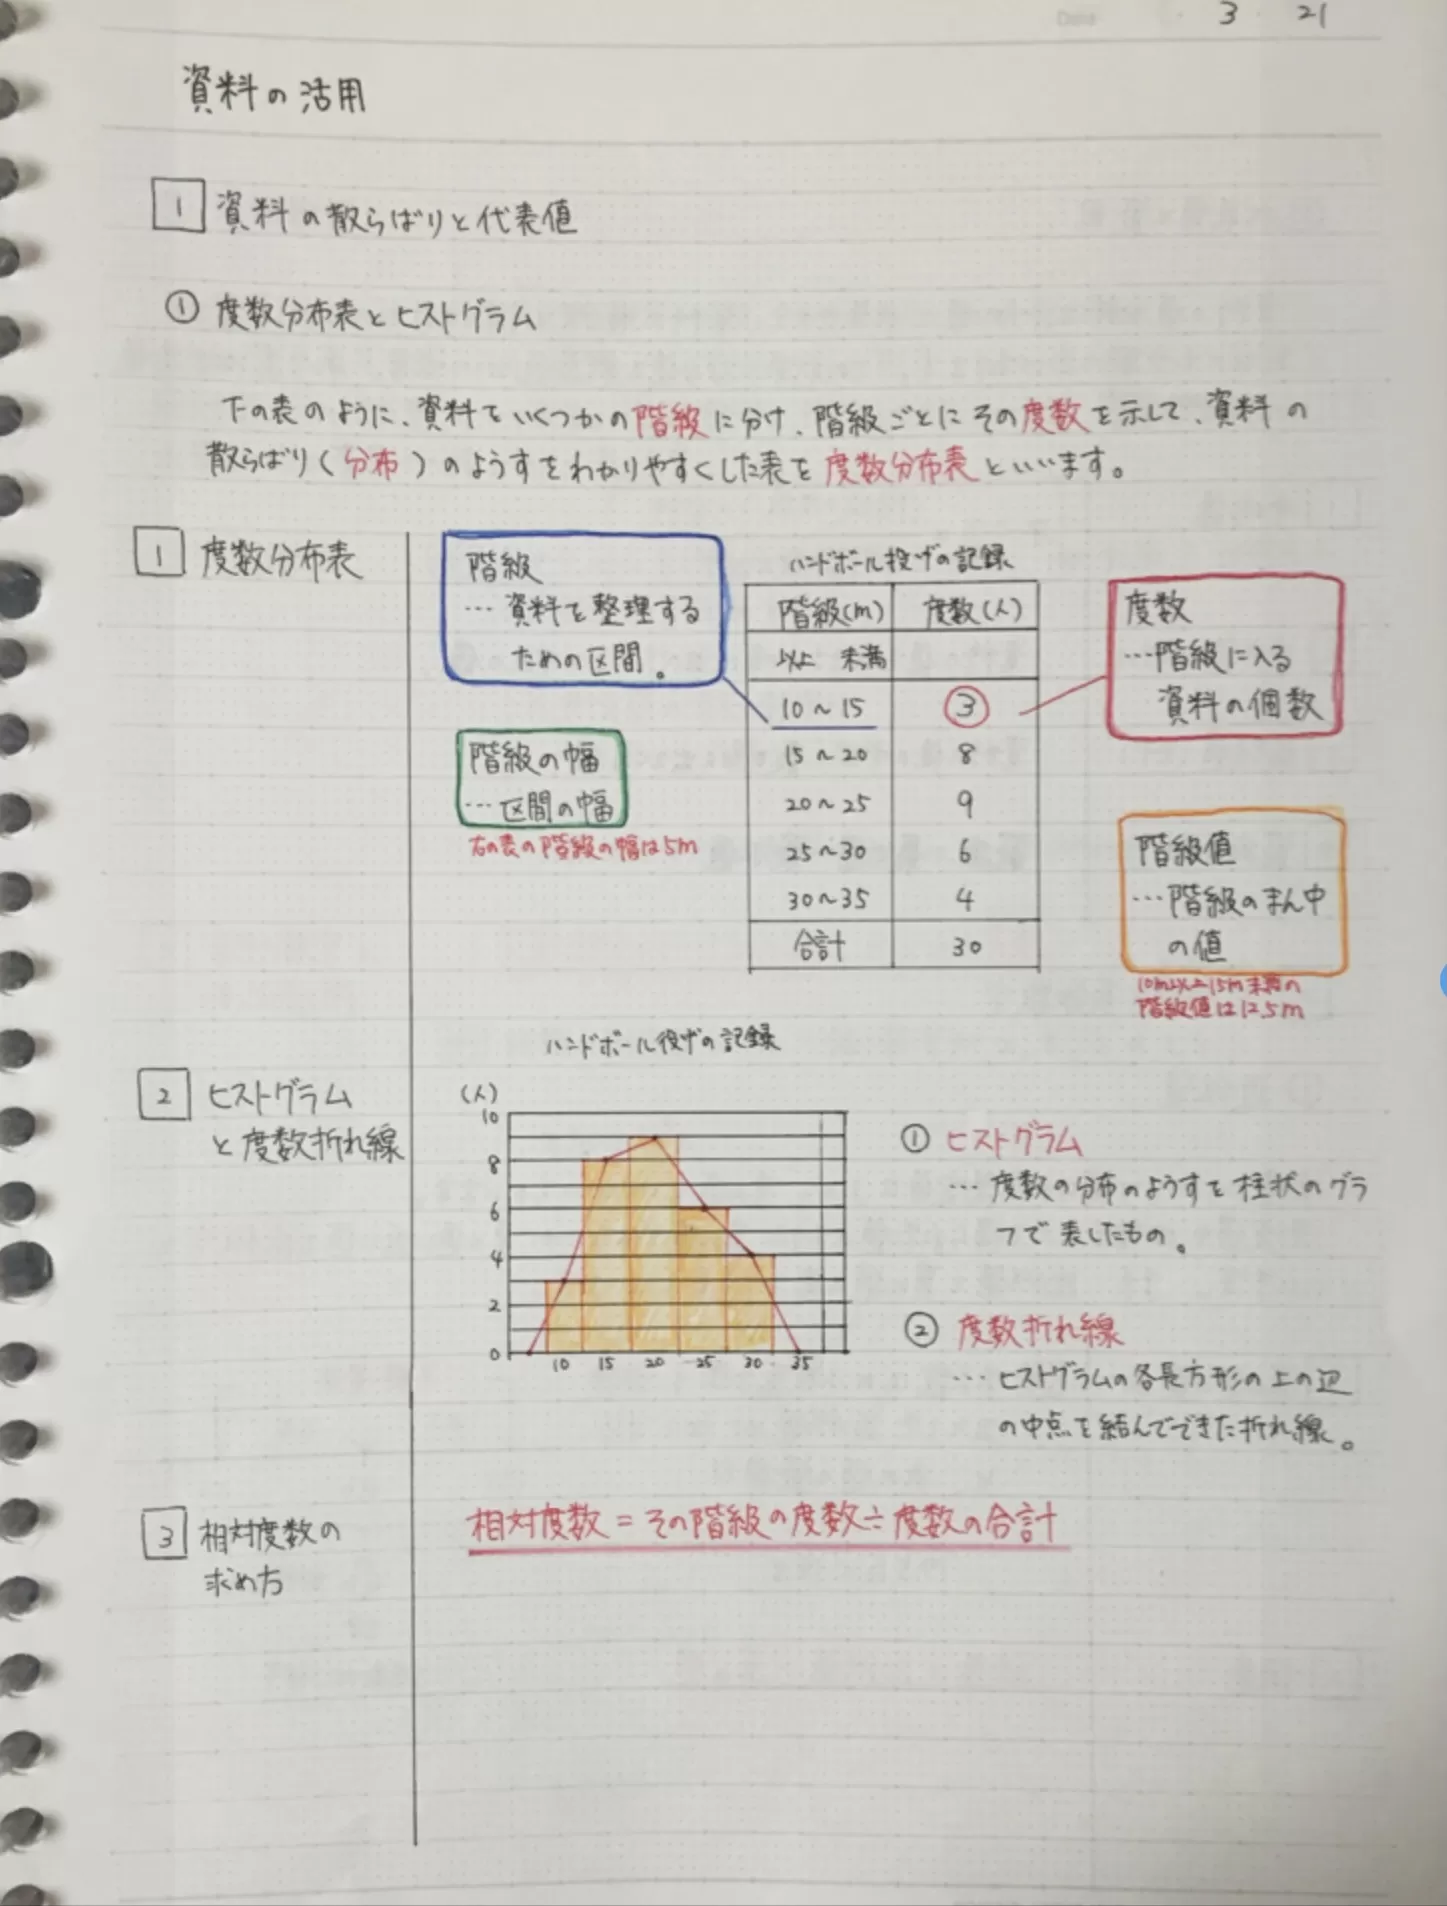 Date ・ 3 ・ 21
資料の活用
1 資料の散らばりと代表値
① 度数分布表とヒストグラム
下の表のように、資料をいくつかの階級に分け、階級ごとにその度数を示して、資料の
散らばり(分布)のようすをわかりやすくした表を度数分布表といいます。
1 度数分布表
階級
… 資料を整理する
ための区間。
階級の幅
… 区間の幅
右の表の階級の幅は5m
ハンドボール投げの記録
階級(m) 度数(人)
以上 未満
10〜15 3
15〜20 8
20〜25 9
25〜30 6
30〜35 4
合計 30
度数
…階級に入る
資料の個数
階級値
…階級のまん中
の値
10m以上15m未満の
階級値は12.5m
2 ヒストグラム
と度数折れ線
ハンドボール投げの記録
(人)
10
8
6
4
2
0
10 15 20 25 30 35
① ヒストグラム
… 度数の分布のようすを柱状のグラ
フで表したもの。
② 度数折れ線
… ヒストグラムの各長方形の上の辺
の中点を結んでできた折れ線。
3 相対度数の
求め方
相対度数=その階級の度数÷度数の合計